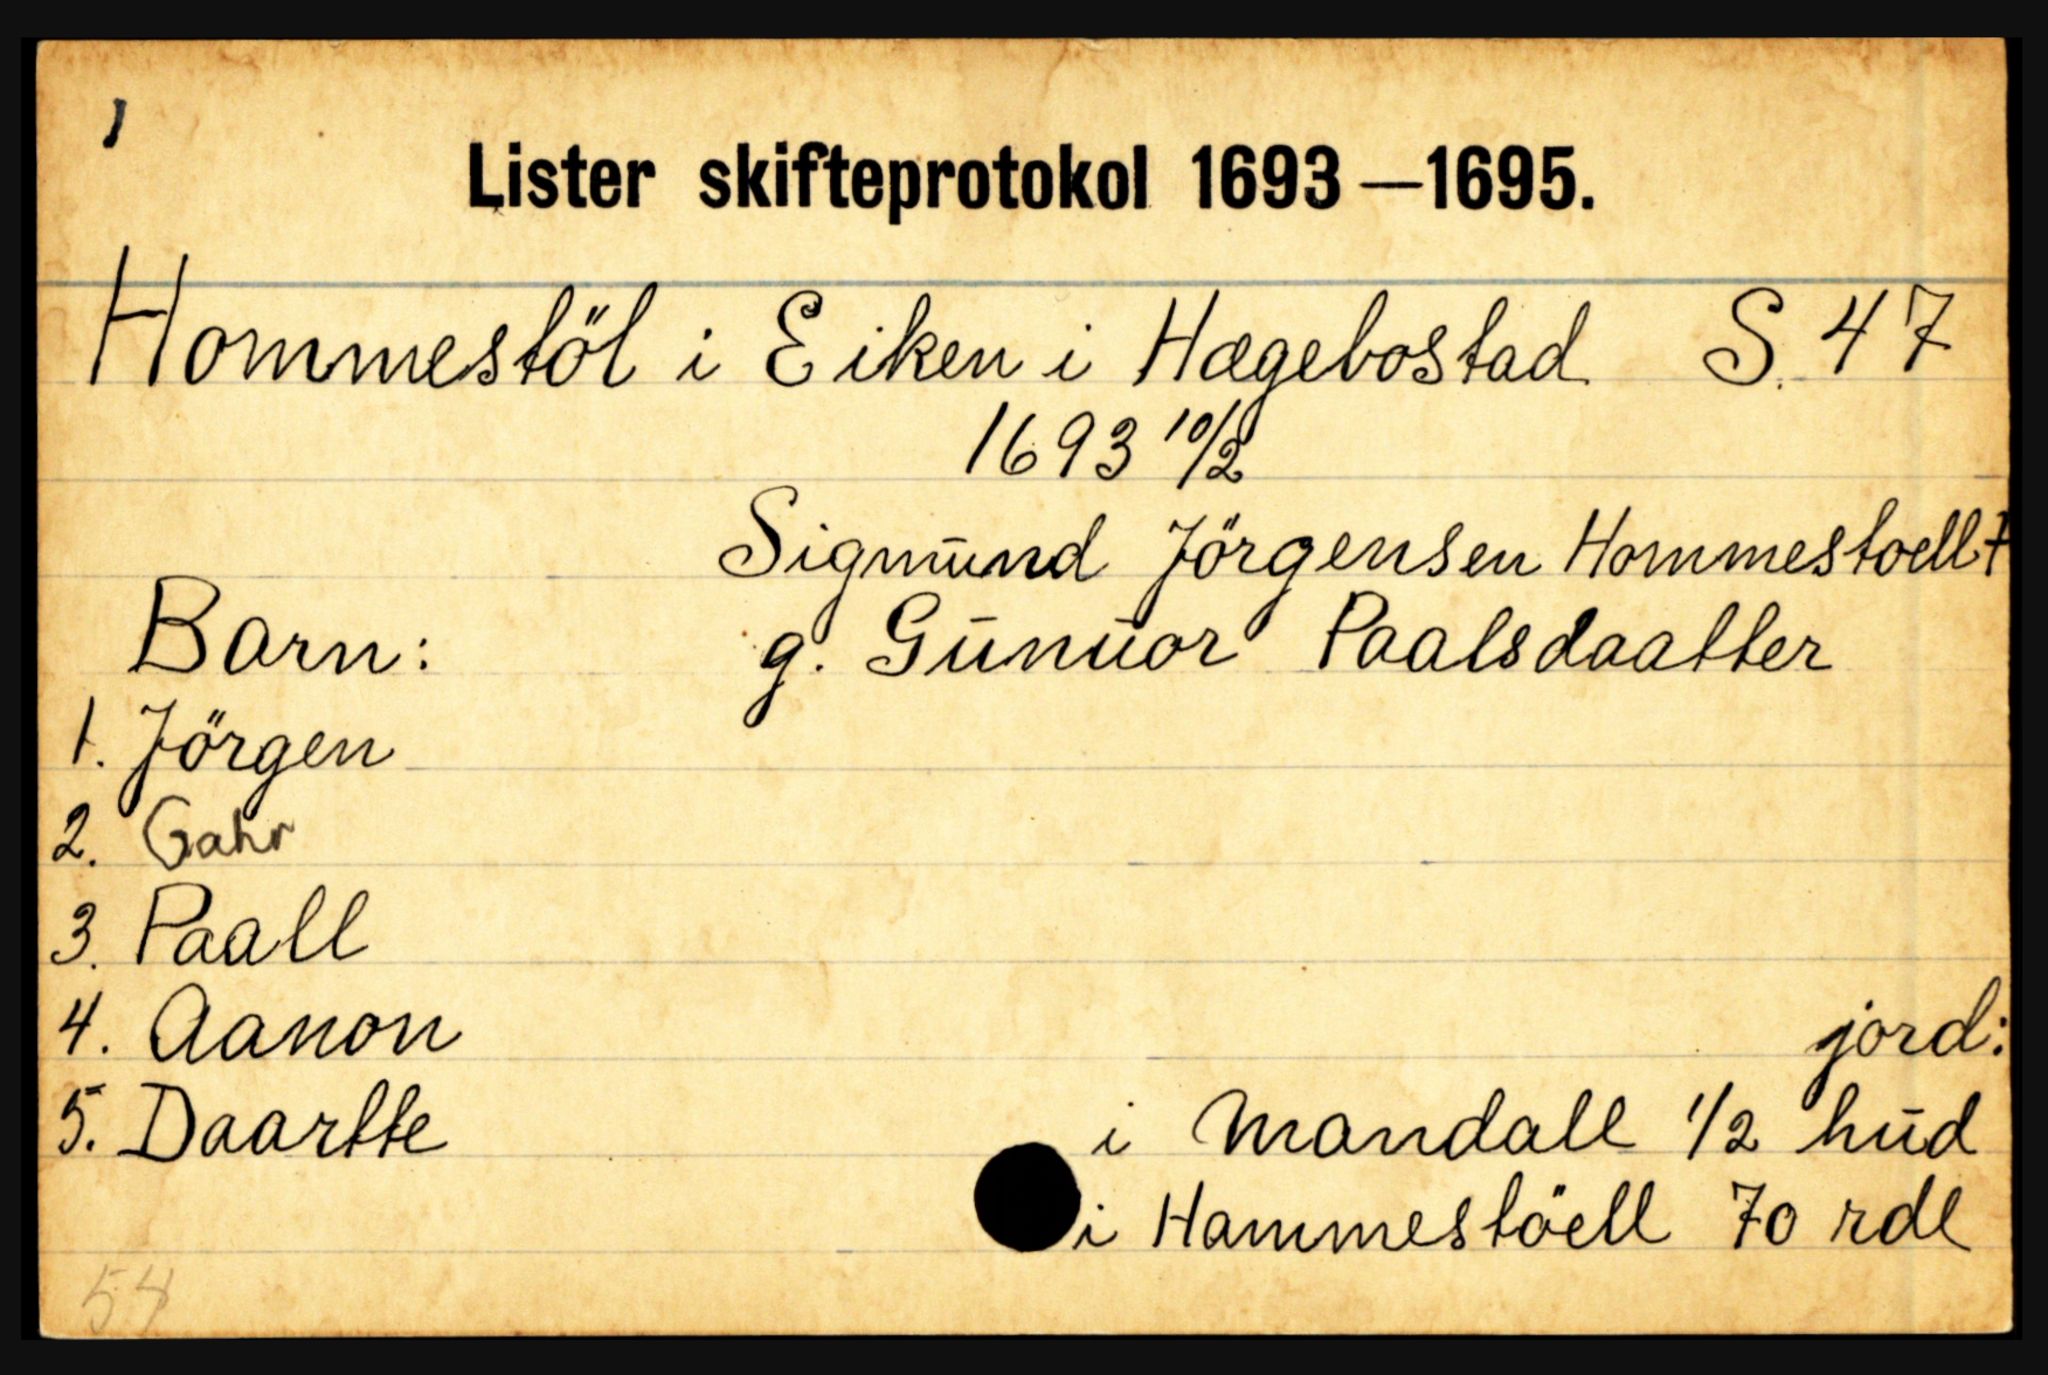 1
Lister skifteprotokol 1693—1695.
Hommestöl i Eiken i Hægebostad S. 47
1693 10/2
Sigmūnd Jörgensen Hommestoell †
Barn: g. Gūnūor Paalsdaatter
1. Jörgen
2. Gahr
3. Paall
4. Aanon jord:
5. Daartte i Mandall 1/2 hūd
i Hammestöell 70 rdl
54